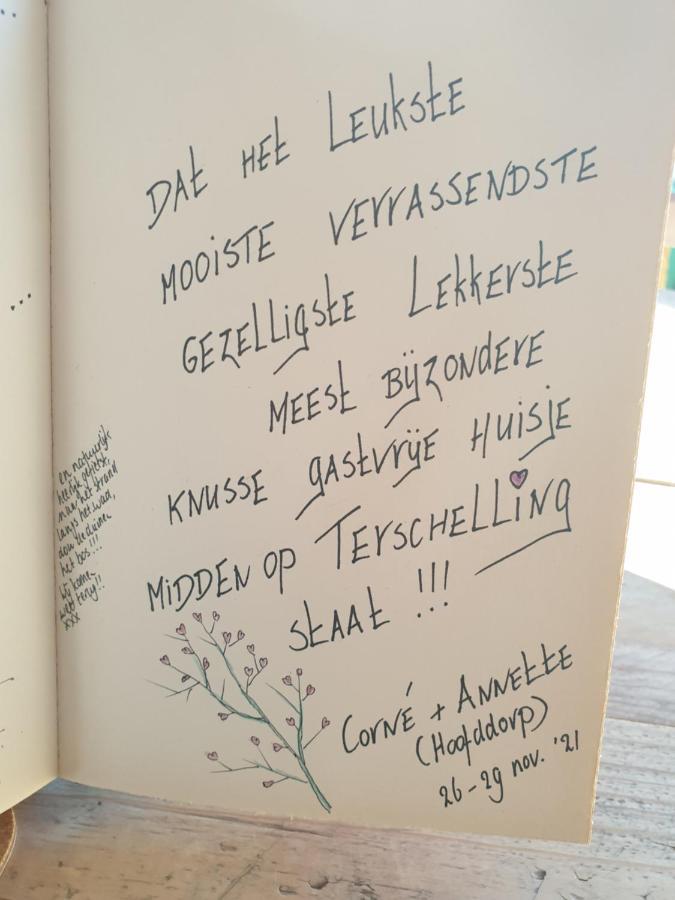 DAt HEt LEUKStE
MOOiSTE VERRASSENDSTE
GEZELLigStE LEKKERStE
MEESt BijZONDERE
KNUSSE gAStVRijE HUiSjE
MiDDEN OP TERSCHELLiNg
StAAt !!!
CORNÉ + ANNEttE
(Hoofddorp)
26-29 nov. '21
en natuurlijk
heerlijk gefietst,
naar het strand
langs het wad,
door de duinen
het bos!!!
Wij komen
weer terug!!
xxx